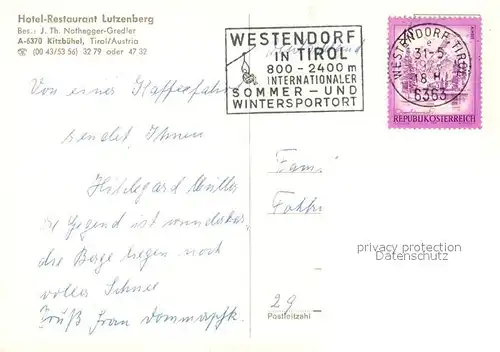 Hotel-Restaurant Lutzenberg
Bes.: J. Th. Nothegger-Gredler
A-6370 Kitzbühel, Tirol/Austria
☎ (00 43/53 56) 32 79 oder 47 32
WESTENDORF
IN TIROL
800 - 2400 m
INTERNATIONALER
SOMMER - UND
WINTERSPORTORT
WESTENDORF TIROL
31.-5.
18 H
6363
REPUBLIK ÖSTERREICH
Von einer Kaffeefahrt
sendet Ihnen
Hildegard Müller
die Gegend ist wunderbar,
die Berge liegen noch
voller Schnee
Gruß Frau
Fami
29
Postleitzahl
privacy protection
VAWD